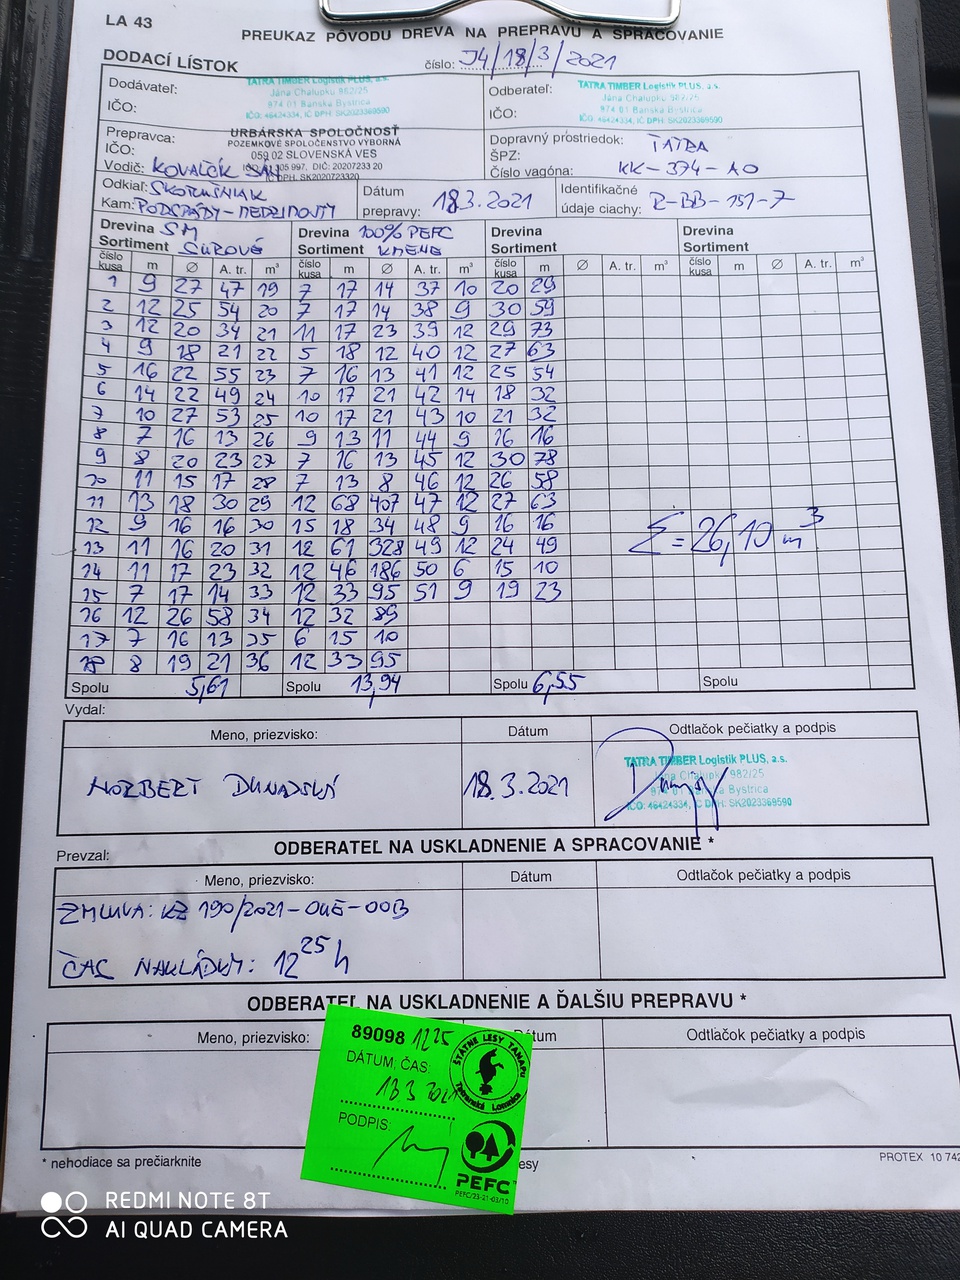 LA 43
PREUKAZ PÔVODU DREVA NA PREPRAVU A SPRACOVANIE
DODACÍ LÍSTOK číslo: J4/18/3/2021
Dodávateľ: TATRA TIMBER Logistik PLUS, a.s.
Jána Chalupku 982/25
974 01 Banská Bystrica
IČO: 46424334, IČ DPH: SK2023369590
Odberateľ: TATRA TIMBER Logistik PLUS, a.s.
Jána Chalupku 982/25
974 01 Banská Bystrica
IČO: 46424334, IČ DPH: SK2023369590
Prepravca: URBÁRSKA SPOLOČNOSŤ
POZEMKOVÉ SPOLOČENSTVO VÝBORNÁ
IČO: 059 02 SLOVENSKÁ VES
DIČ: 20207233 20
IČ DPH. SK2020723320
Vodič: KOVALČÍK JÁN
Dopravný prostriedok: TATRA
ŠPZ:
Číslo vagóna: KK-374-AO
Odkiaľ: SKORUŠNIAK
Kam: PODSPÁDY-MEDZIMOSTY
Dátum prepravy: 18.3.2021
Identifikačné údaje ciachy: R-BB-151-7
Drevina SM Drevina 100% PEFC Drevina Drevina
Sortiment SUROVÉ Sortiment KMENE Sortiment Sortiment
číslo kusa m Ø A. tr. m³ číslo kusa m Ø A. tr. m³ číslo kusa m Ø A. tr. m³ číslo kusa m Ø A. tr. m³
1 9 27 47 19 7 17 14 37 10 20 29
2 12 25 54 20 7 17 14 38 9 30 59
3 12 20 34 21 11 17 23 39 12 29 73
4 9 18 21 22 5 18 12 40 12 27 63
5 16 22 55 23 7 16 13 41 12 25 54
6 14 22 49 24 10 17 21 42 14 18 32
7 10 27 53 25 10 17 21 43 10 21 32
8 7 16 13 26 9 13 11 44 9 16 16
9 8 20 23 27 7 16 13 45 12 30 78
10 11 15 17 28 7 13 8 46 12 26 58
11 13 18 30 29 12 68 407 47 12 27 63
12 9 16 16 30 15 18 34 48 9 16 16
13 11 16 20 31 12 61 328 49 12 24 49
14 11 17 23 32 12 46 186 50 6 15 10
15 7 17 14 33 12 33 95 51 9 19 23
16 12 26 58 34 12 32 89
17 7 16 13 35 6 15 10
18 8 19 21 36 12 33 95
Σ = 26,10 m³
Spolu 5,61 Spolu 13,94 Spolu 6,55 Spolu
Vydal:
Meno, priezvisko: Dátum Odtlačok pečiatky a podpis
NORBERT DUNAJSKÝ 18.3.2021
TATRA TIMBER Logistik PLUS, a.s.
Jána Chalupku 982/25
974 01 Banská Bystrica
IČO: 46424334, IČ DPH: SK2023369590
Prevzal: ODBERATEĽ NA USKLADNENIE A SPRACOVANIE *
Meno, priezvisko: Dátum Odtlačok pečiatky a podpis
ZMLUVA: KZ 190/2021-OUE-00B
ČAS NAKLÁDKY: 12 25 h
ODBERATEĽ NA USKLADNENIE A ĎALŠIU PREPRAVU *
Meno, priezvisko: Dátum Odtlačok pečiatky a podpis
89098 1225
DÁTUM, ČAS:
18 3 2021
PODPIS:
ŠTÁTNE LESY TANAPU
Tatranská Lomnica
PEFC
PEFC/23-21-03/10
* nehodiace sa prečiarknite
esy
PROTEX 10 742
REDMI NOTE 8T
AI QUAD CAMERA